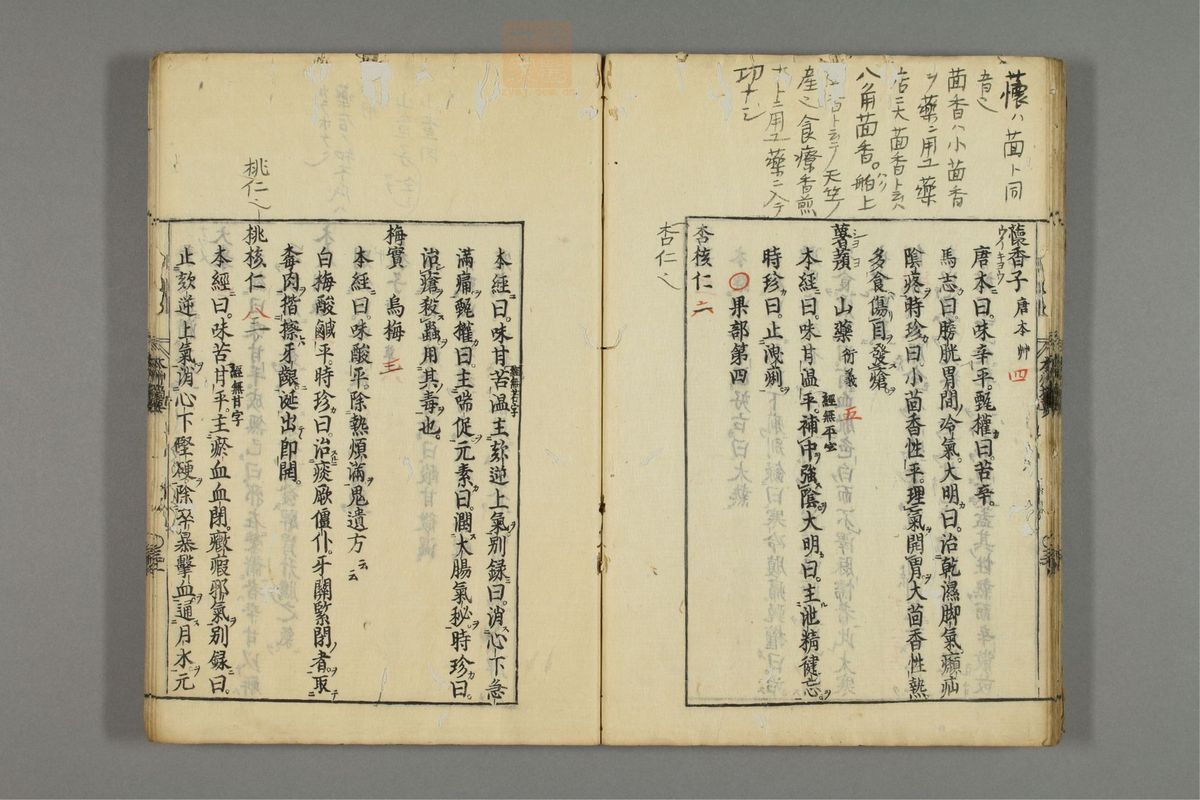 蘹ハ茴ト同
音也
茴香ハ小茴香
ヲ藥ニ用ユ藥
店ニ大茴香ト云ハ
八角茴香。舶上
茴香ト云テ天竺ノ
産也食療香煎
ナトニ用ユ藥ニ入テ
功ナシ
蘹香子 唐本艸 四
ウイキヨウ
唐本曰。味辛平。甄權曰。苦辛。
馬志曰。膀胱胃間冷氣。大明曰。治乾濕脚氣㿗疝
陰疼。時珍曰。小茴香性平。理氣開胃。大茴香性熱
多食傷目發瘡。
薯蕷 山藥 衍義 五
シヨヨ
本經曰。味甘温平。補中強陰。大明曰。主泄精健忘。
經無平字
時珍曰。止洩痢。
〇果部第四
杏仁也
杏核仁 二
本經曰。味甘苦温。主欬逆上氣。別録曰。消心下急
經無苦字
滿痛。甄權曰。主喘促。元素曰。潤大腸氣秘。時珍曰。
治瘡殺蟲。用其毒也。
梅實 烏梅 三
本經曰。味酸平。除熱煩滿。鬼遺方云云
白梅酸鹹平。時珍曰。治痰厥僵仆。牙關緊閉者。取
梅肉揩擦牙齦。涎出即開。
桃仁也
桃核仁 八
本經曰。味苦甘平。主瘀血血閉。癥瘕邪氣。別録曰。
經無甘字
止欬逆上氣。消心下堅硬。除卒暴擊血。通月水。元